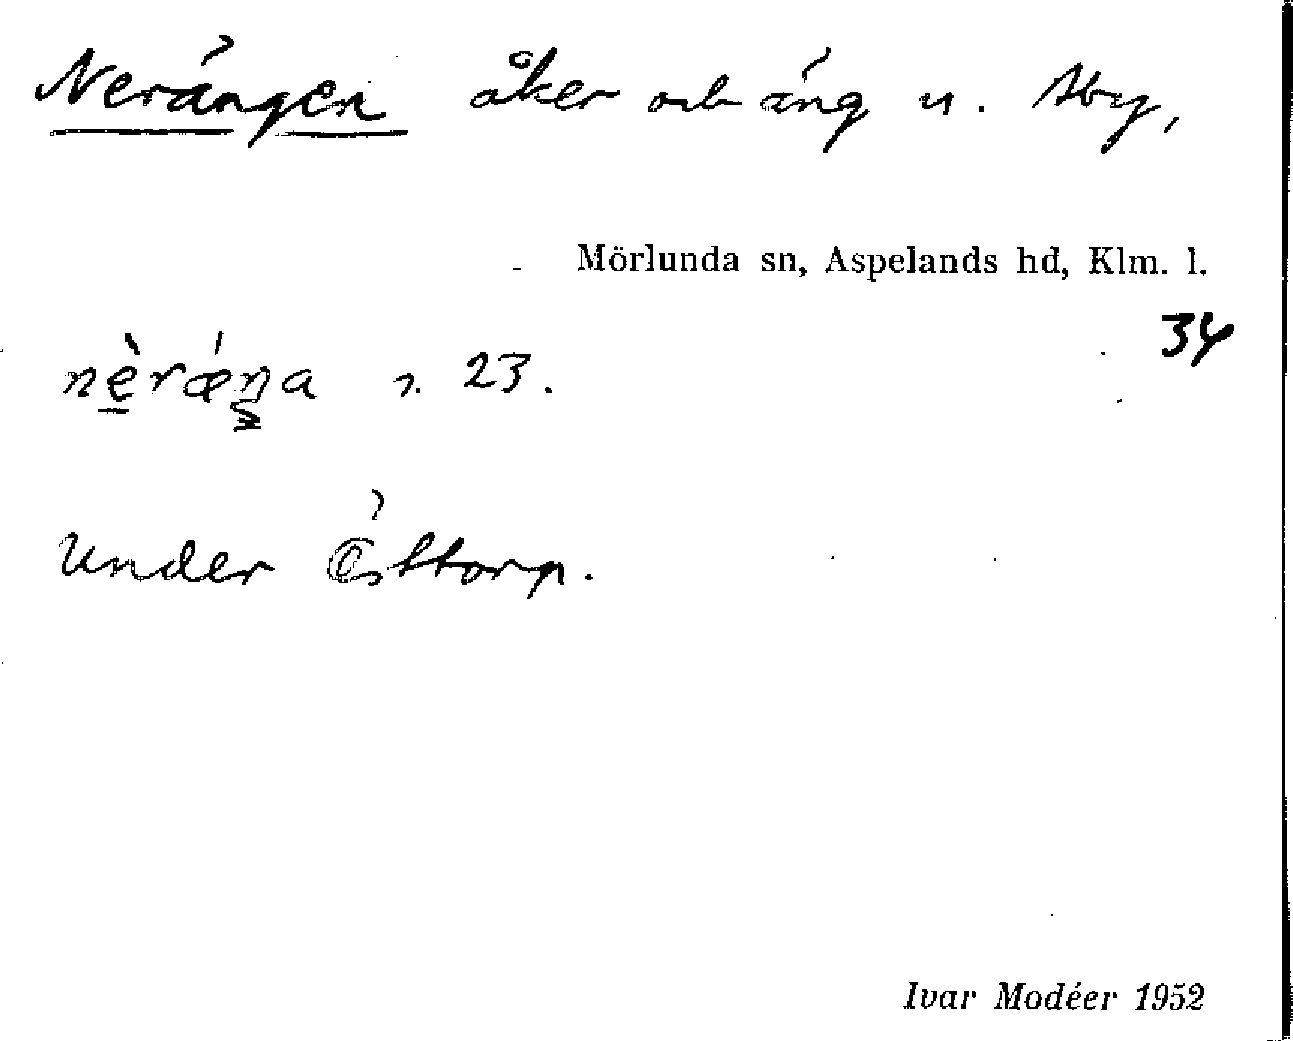 Nerängen åker och äng u. Åby,
Mörlunda sn, Aspelands hd, Klm. l.
34
nè̱rǽŋa r. 23.
Under Östtorp.
Ivar Modéer 1952